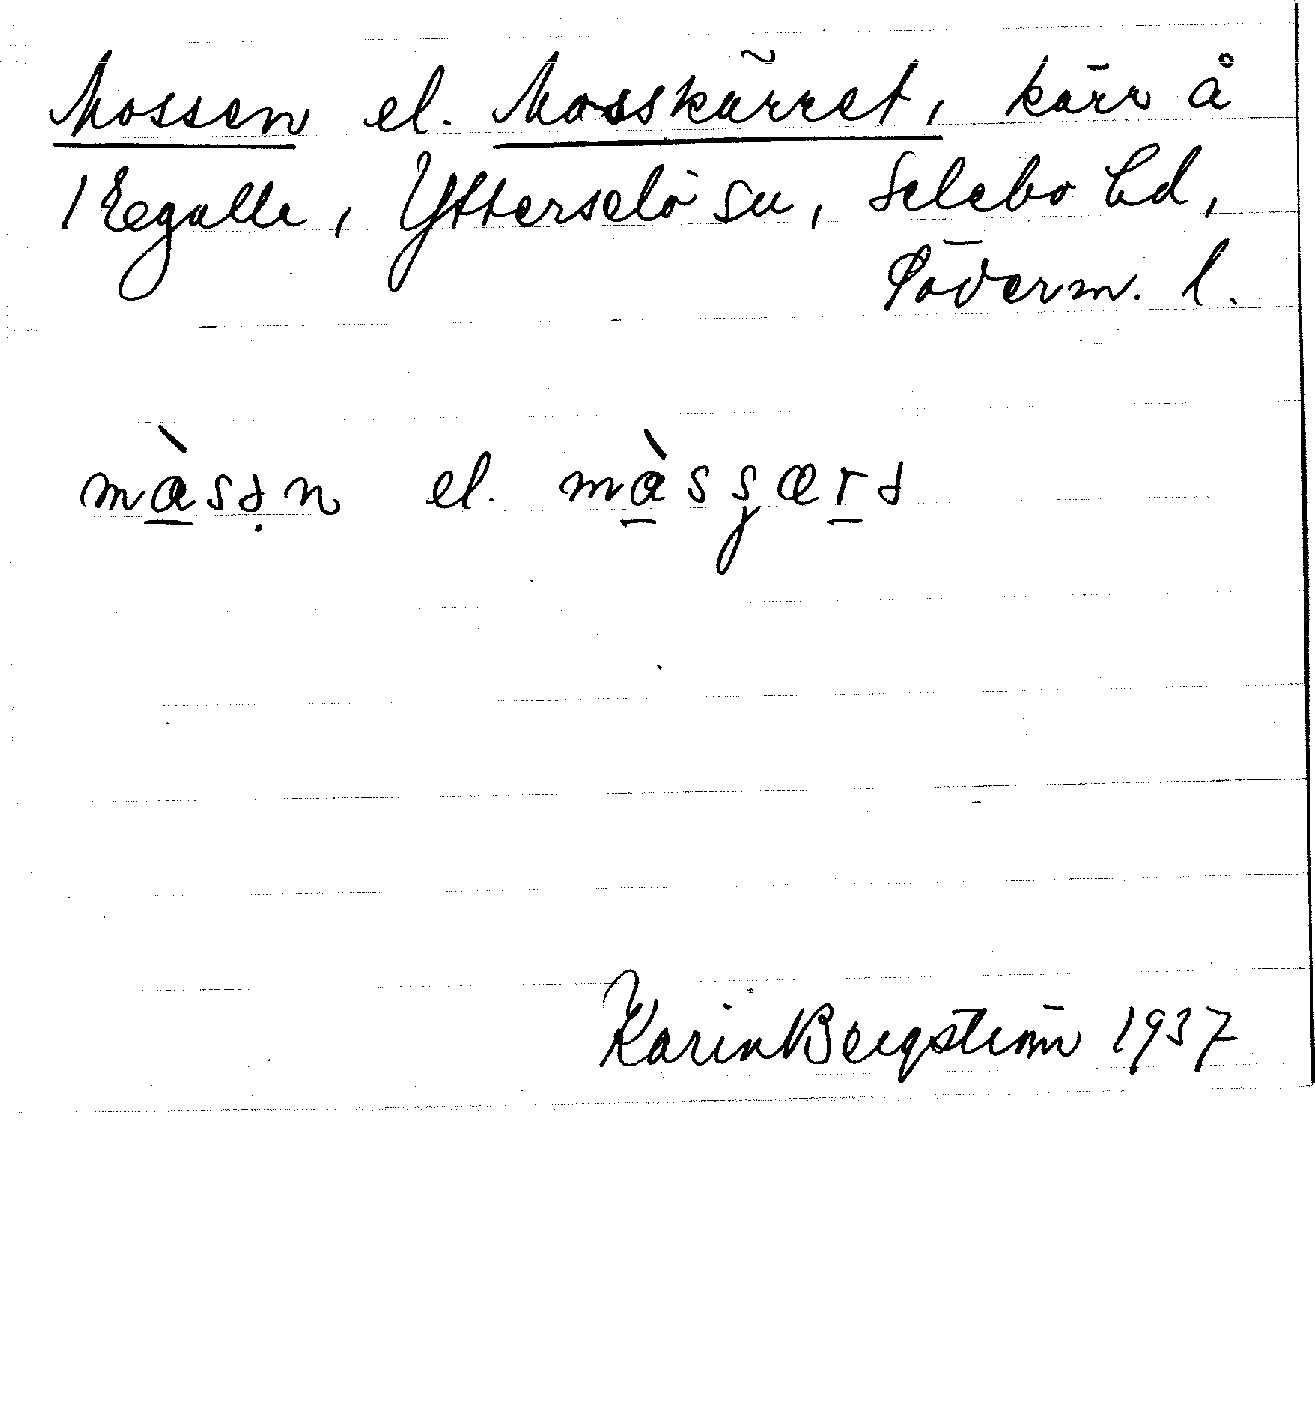 Mossen el. Mosskärret, kärr å
1 Egalla, Ytterselö sn, Selebo hd,
Söderm. l.
màsən el. màssʒærə
Karin Bergström 1937